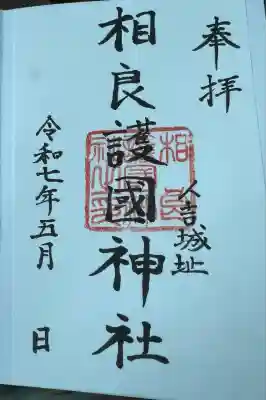 奉拝
人吉城址
相良護國神社
令和七年五月 日